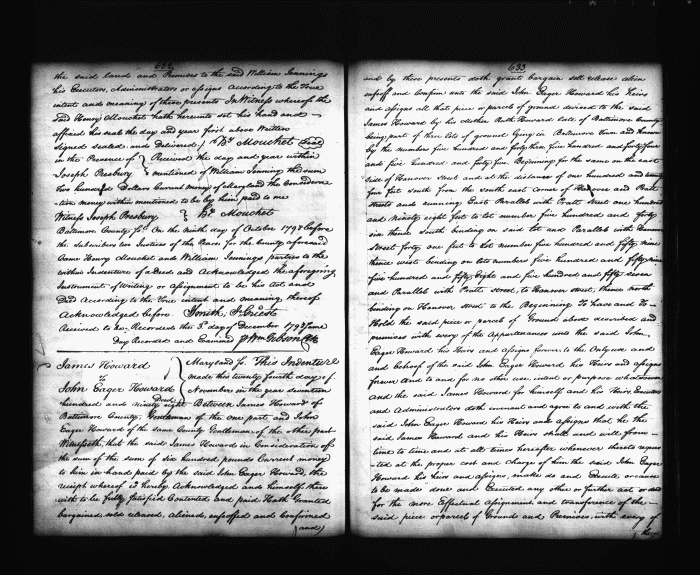 632
the said land and Premises to the said William Jennings
his Executors, Administrators or assigns According to the True
intent and meaning of these presents In Witness whereof the
Said Henry Mouchet hath hereunto set his hand and
affixed his seal the day and year first above Written
Signed sealed and Delivered Hy Mouchet Seal
in the Presence of Received the day and year within
Joseph Presbury mentioned of William Jenning the sum
Two hundred Dollars Current money of Maryland the Considera
tion money within mentioned to be by him paid to me
Witness Joseph Presbury Hy Mouchet
Baltimore County Sc. On the ninth day of October 1798 before
the Subscribers two Justices of the Peace for the County aforesaid
Came Henry Mouchet and William Jennings parties to the
within Indenture a Deed and Acknowledged the aforegoing
Instrument of writing or assignment to be his act and
Deed According to the True intent and meaning thereof
Acknowledged before
Received to be Recorded the 3d day of December 1798 Same
day Recorded and Examined Wm Gibson Clk
James Howard
to
John Eager Howard
Maryland Sc. This Indenture
made this twenty fourth day of
November in the year seventeen
hundred and ninety eight Between James Howard of
Baltimore County, Gentleman of the one part and John
Eager Howard of the same County Gentleman of the other part
Witnesseth, that the said James Howard in Consideration of
the sum of the sum of six hundred pounds Current money
to him in hand paid by the said John Eager Howard, the
receipt whereof is hereby Acknowledged and himself there
with to be fully satisfied Contented and paid Hath Granted
bargained sold released, aliened, enfeoffed and Confirmed
(and)
633
and by these presents doth grant bargain sell release alien
enfeoff and Confirm unto the said John Eager Howard his Heirs
and assigns all that piece or parcel of ground devised to the said
James Howard by his Mother Ruth Howard late of Baltimore County
being part of three lots of ground lying in Baltimore Town and known
by the numbers five hundred and forty, then five hundred and forty four
and five hundred and forty five Beginning for the same on the east
side of Hanover street and at the distance of one hundred and twenty
five feet south from the south east corner of Hanover and Pratt
streets and running East Parallel with Pratt Street one hundred
and ninety eight feet to lot number five hundred and forty
six thence South bending on said lot and Parallel with Hanover
Street forty one feet to lot number five hundred and fifty nine
thence west bending on lots numbers five hundred and fifty nine
five hundred and fifty eight and five hundred and fifty seven
and Parallel with Pratt street, to Hanover street, thence north
bending on Hanover street to the Beginning To have and To
Hold the said piece or parcel of Ground above described and
premises with every of the Appurtenances unto the said John
Eager Howard his Heirs and Assigns forever to the Only use and
and Behoof of the said John Eager Howard his Heirs and assigns
forever and to and for no other use, intent or purpose whatsoever
and the said James Howard for himself and his Heirs, Executors
and Administrators doth covenant and agree to and with the
said John Eager Howard his Heirs and assigns that he the
said James Howard and his Heirs shall and will from
time to time and at all times hereafter whenever thereto reques
ted at the proper cost and Charge of him the said John Eager
Howard his Heirs and assigns, make do and Execute or cause
to be made done and Executed any other or further act or deed
for the more Effectual assignment and transference of the
said piece or parcel of Ground and Premises, with every of